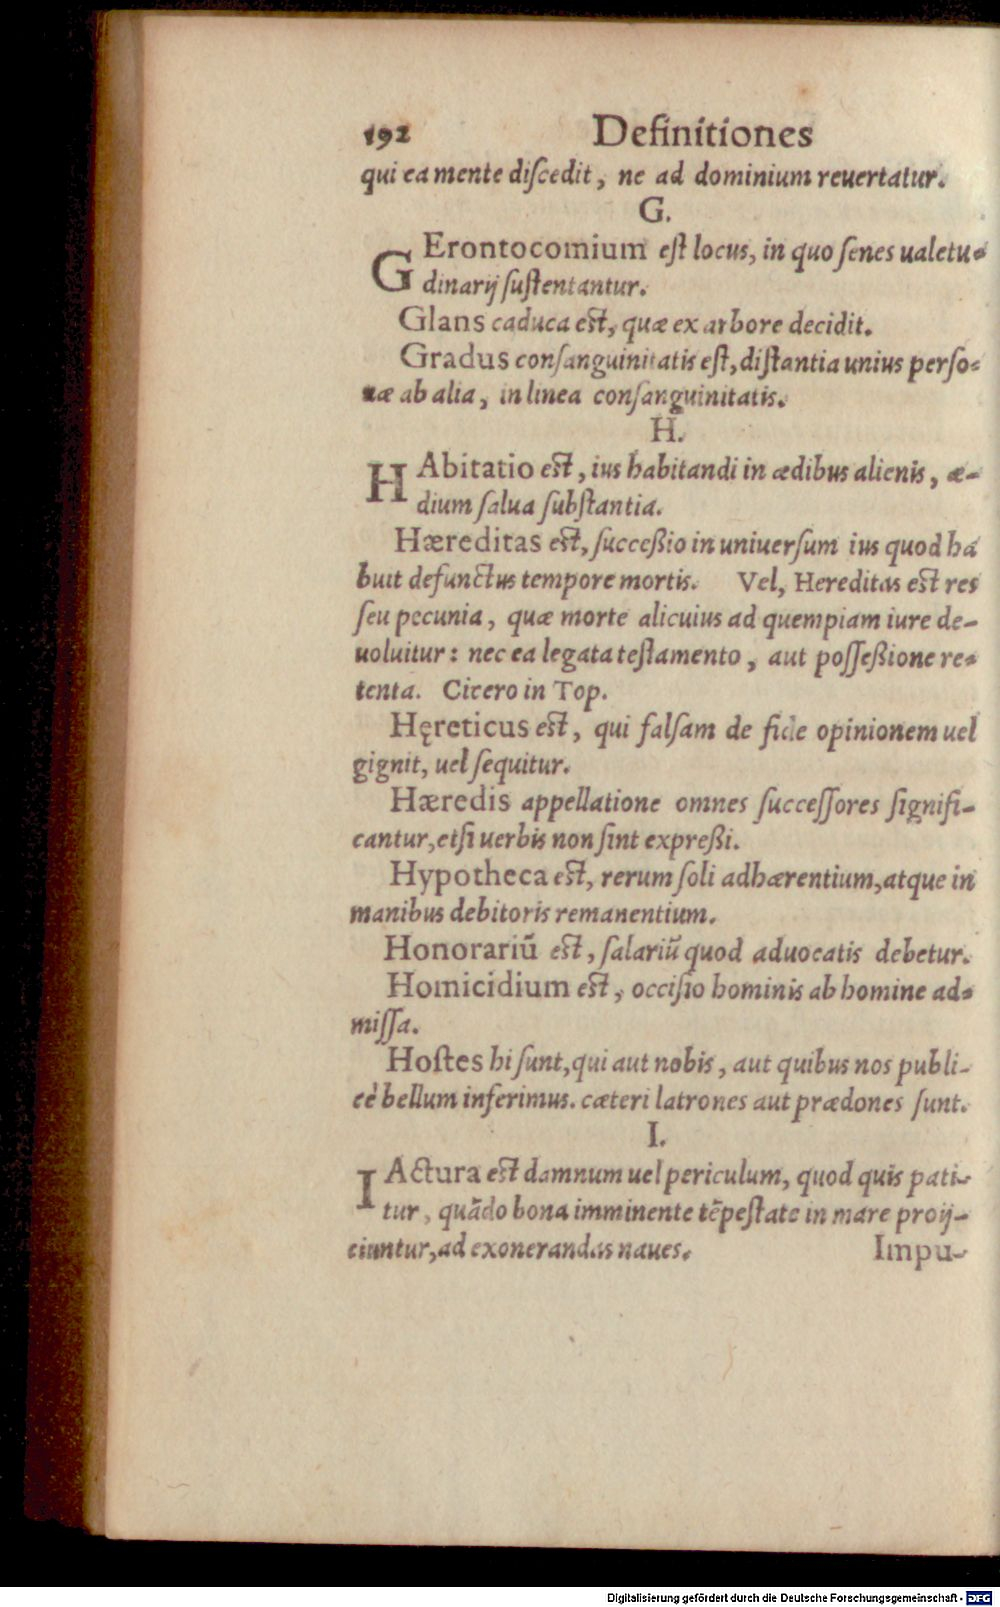 192 Definitiones
qui ea mente diſcedit, ne ad dominium reuertatur.
G.
GErontocomium eſt locus, in quo ſenes ualetu-
dinarij ſuſtentantur.
Glans caduca eſt, quæ ex arbore decidit.
Gradus conſanguinitatis eſt, diſtantia unius perſo-
næ ab alia, in linea conſanguinitatis.
H.
HAbitatio eſt, ius habitandi in ædibus alienis, æ-
dium ſalua ſubſtantia.
Hæreditas eſt, ſucceßio in uniuerſum ius quod ha
buit defunctus tempore mortis. Vel, Hereditas eſt res
ſeu pecunia, quæ morte alicuius ad quempiam iure de-
uoluitur: nec ea legata teſtamento, aut poſſeßione re-
tenta. Cicero in Top.
Hęreticus eſt, qui falſam de fide opinionem uel
gignit, uel ſequitur.
Hæredis appellatione omnes ſucceſſores ſignifi-
cantur, etſi uerbis non ſint expreßi.
Hypotheca eſt, rerum ſoli adhærentium, atque in
manibus debitoris remanentium.
Honorariũ eſt, ſalariũ quod aduocatis debetur.
Homicidium eſt, occiſio hominis ab homine ad-
miſſa.
Hoſtes hi ſunt, qui aut nobis, aut quibus nos publi-
cè bellum inferimus. cæteri latrones aut prædones ſunt.
I.
IActura eſt damnum uel periculum, quod quis pati-
tur, quãdo bona imminente tẽpeſtate in mare proij-
ciuntur, ad exonerandas naues. Impu-
Digitalisierung gefördert durch die Deutsche Forschungsgemeinschaft - DFG